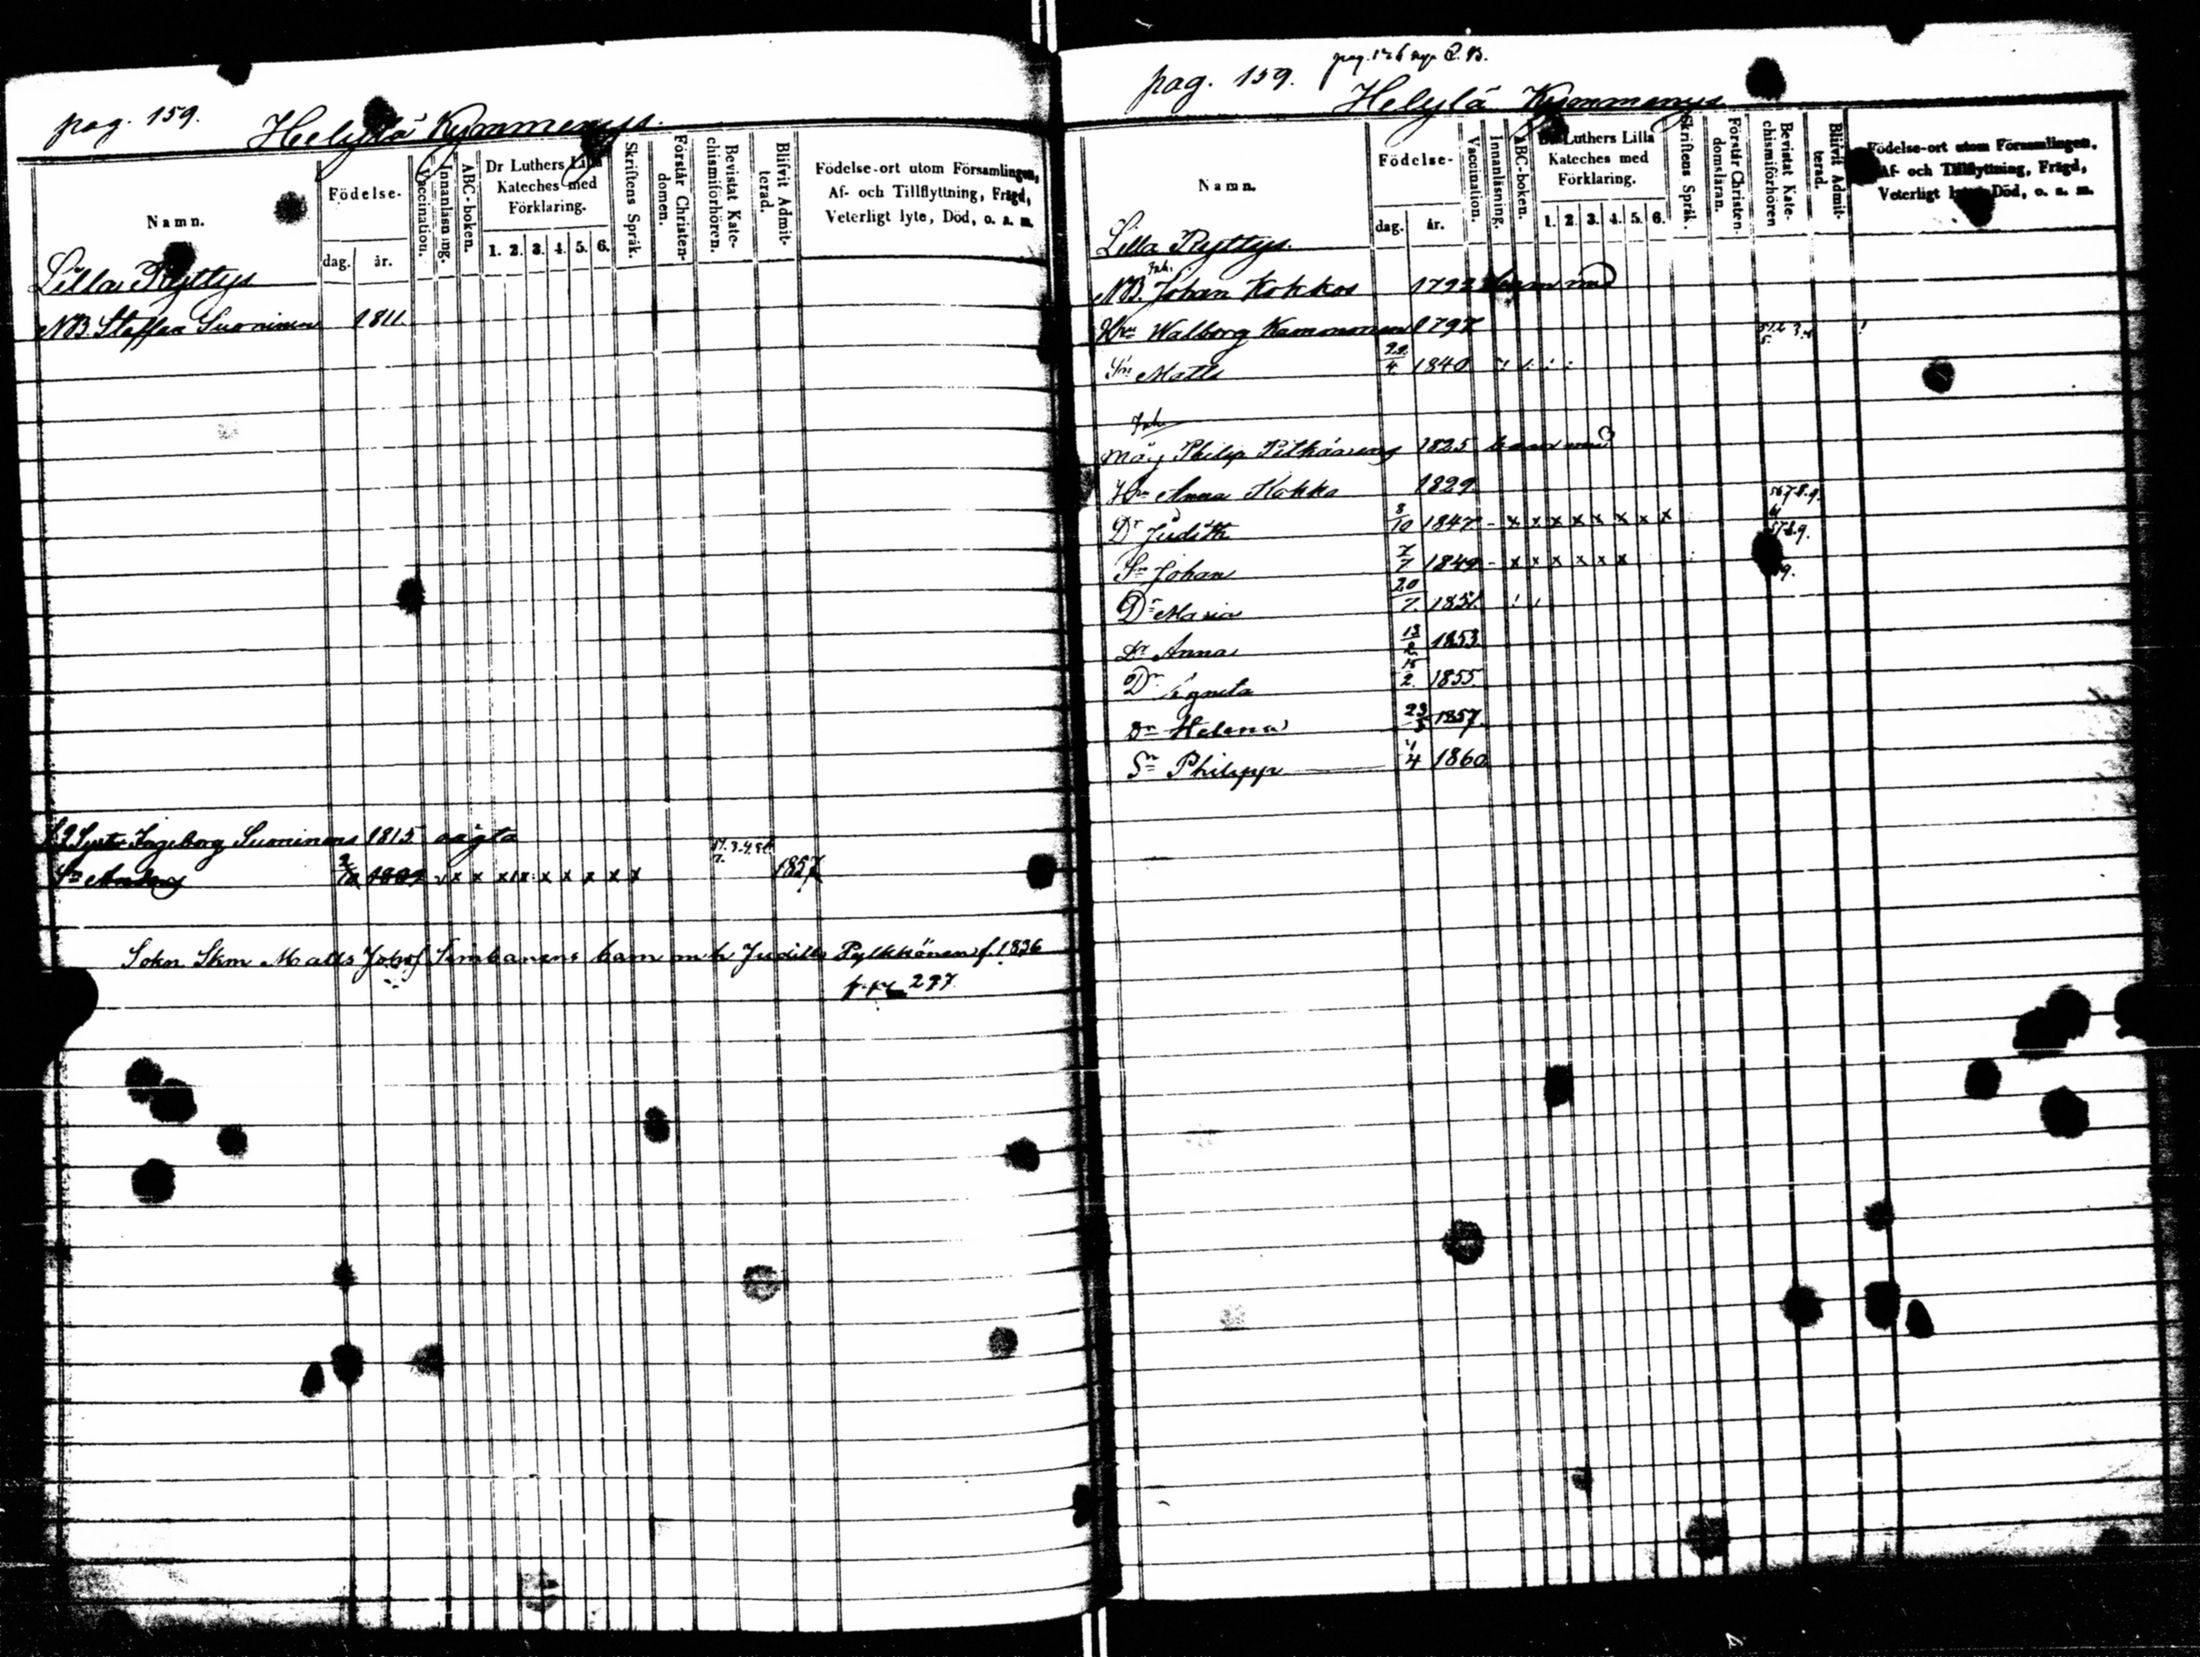 pag. 159. Helylä Kymmenys.
Namn.
Födelse-
dag. år.
Vaccination.
Innanläsning.
ABC-boken.
Dr Luthers Lilla
Kateches med
Förklaring.
1. 2. 3. 4. 5. 6.
Skriftens Språk.
Förstår Christen-
domen.
Bevistat Kate-
chismiförhören.
Blifvit Admit-
terad.
Födelse-ort utom Församlingen,
Af- och Tillflyttning, Frägd,
Veterligt lyte, Död, o. s. m.
Lilla Ryttys
NB. Staffan Suoninen 1811.
Syster Ingeborg Suoninens 1815
Sn Anders x x x x x x x x 1857
Sokn Skm Matts Josef barn m h Judith Pylkkönen f. 1836
297.
pag. 159.
Helylä Kymmenys
Namn.
Födelse-
dag. år.
Vaccination.
Innanläsning.
ABC-boken.
Dr Luthers Lilla
Kateches med
Förklaring.
1. 2. 3. 4. 5. 6.
Skriftens Språk.
Förstår Christen-
domsläran.
Bevistat Kate-
chismiförhören
Blifvit Admit-
terad.
Födelse-ort utom Församlingen,
Af- och Tillflyttning, Frägd,
Veterligt lyte, Död, o. s. m.
Lilla Ryttys.
Inh.
NB. Johan Kokkos 1792
Hru Walborg 1797
Sn Matts 22/4 1840
Inh
Måg Philip Pitkänens 1825
Hru Anna Kokko 1829.
Dr Judith 8/10 1847 - x x x x x x x x
Sn Johan 7/7 1849 - x x x x x x
Dr Maria 20/7 1851.
Dr Anna 1853.
Dr Agneta 15/2 1855.
Dr Helena 23/3 1857.
Sn Philipp 4/4 1860